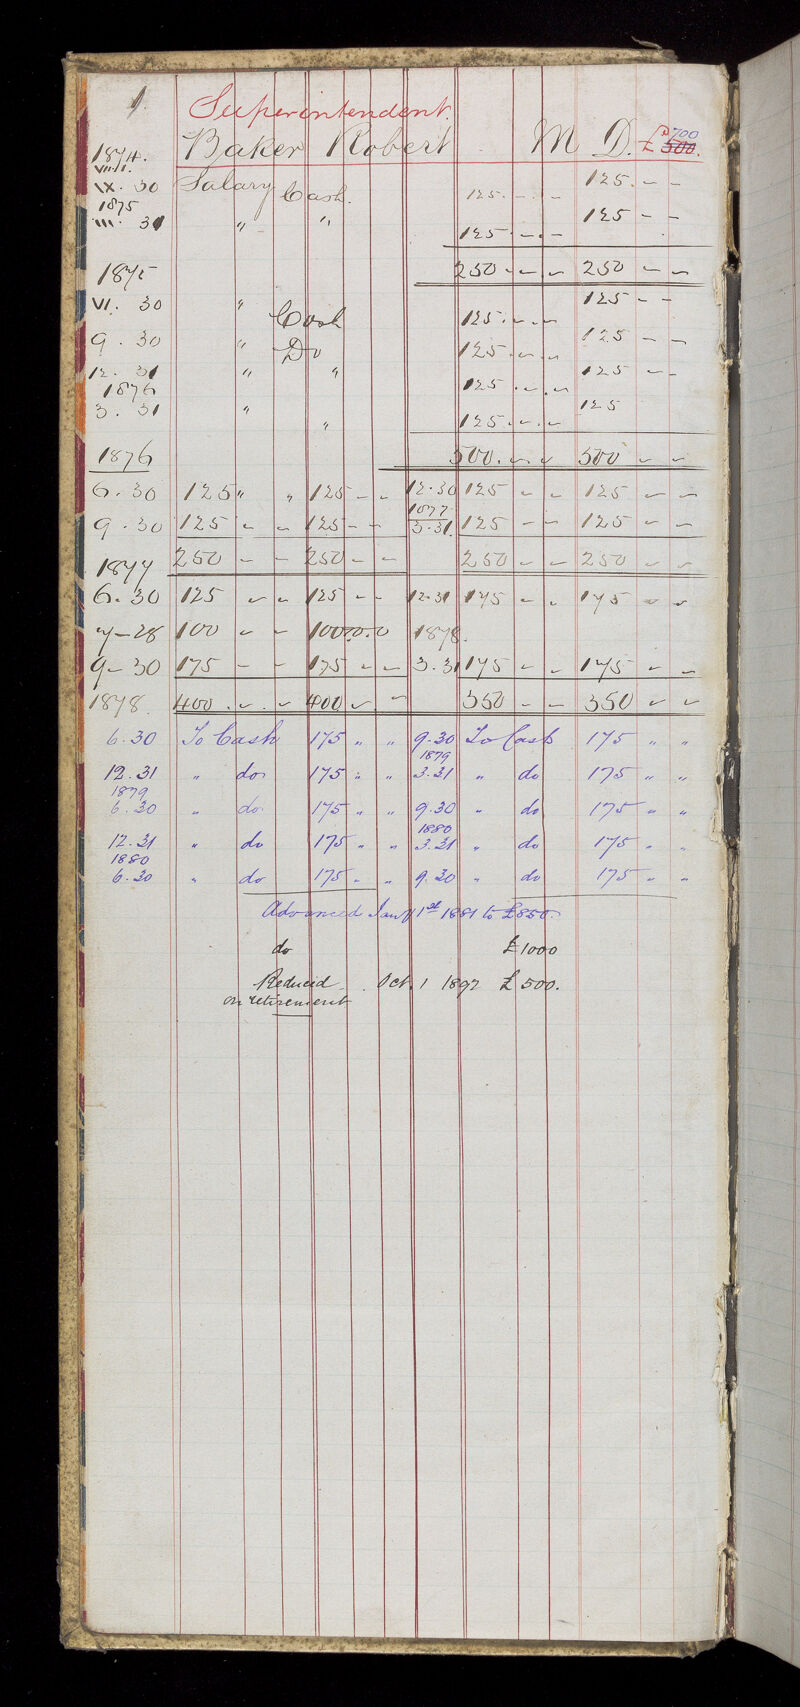 1.
Superintendent.
1874. Baker Robert M D. £ 700 500.
VIII.1.
IX. 30 Salary Cash. 125. – – 125. – –
1875
III. 31 " " 125 – – 125 – –
1875 250 – – 250 – –
VI. 30 " Cash 125. – – 125 – –
9. 30 " Do 125. – – 125 – –
12. 31 " " 125. – – 125 – –
1876
3. 31 " " 125. – – 125
1876 500. – – 500 – –
6. 30 125 " " 125 – – 12.30 125 – – 125 – –
1877
9. 30 125 – – 125 – – 3.31. 125 – – 125 – –
1877 250 – – 250 – – 250 – – 250 – –
6. 30 125 – – 125 – – 12.31 175 – – 175 – –
7–28 100 – – 100.0.0 1878.
9–30 175 – – 175 – – 3.31 175 – – 175 – –
1878. 400. – – 400 – – 350 – – 350 – –
6.30 To Cash 175 " " 9.30 To Cash 175 " "
1879
12.31 " do 175 " " 3.31 " do 175 " "
1879
6.30 " do 175 " " 9.30 " do 175 " "
1880
12.31 " do 175 " " 3.31 " do 175 " "
1880
6.30 " do 175 " " 9.30 " do 175 " "
Advanced Jany 1st 1881 to £850.
do £1000
Reduced Oct. 1 1892 £500.
on retirement